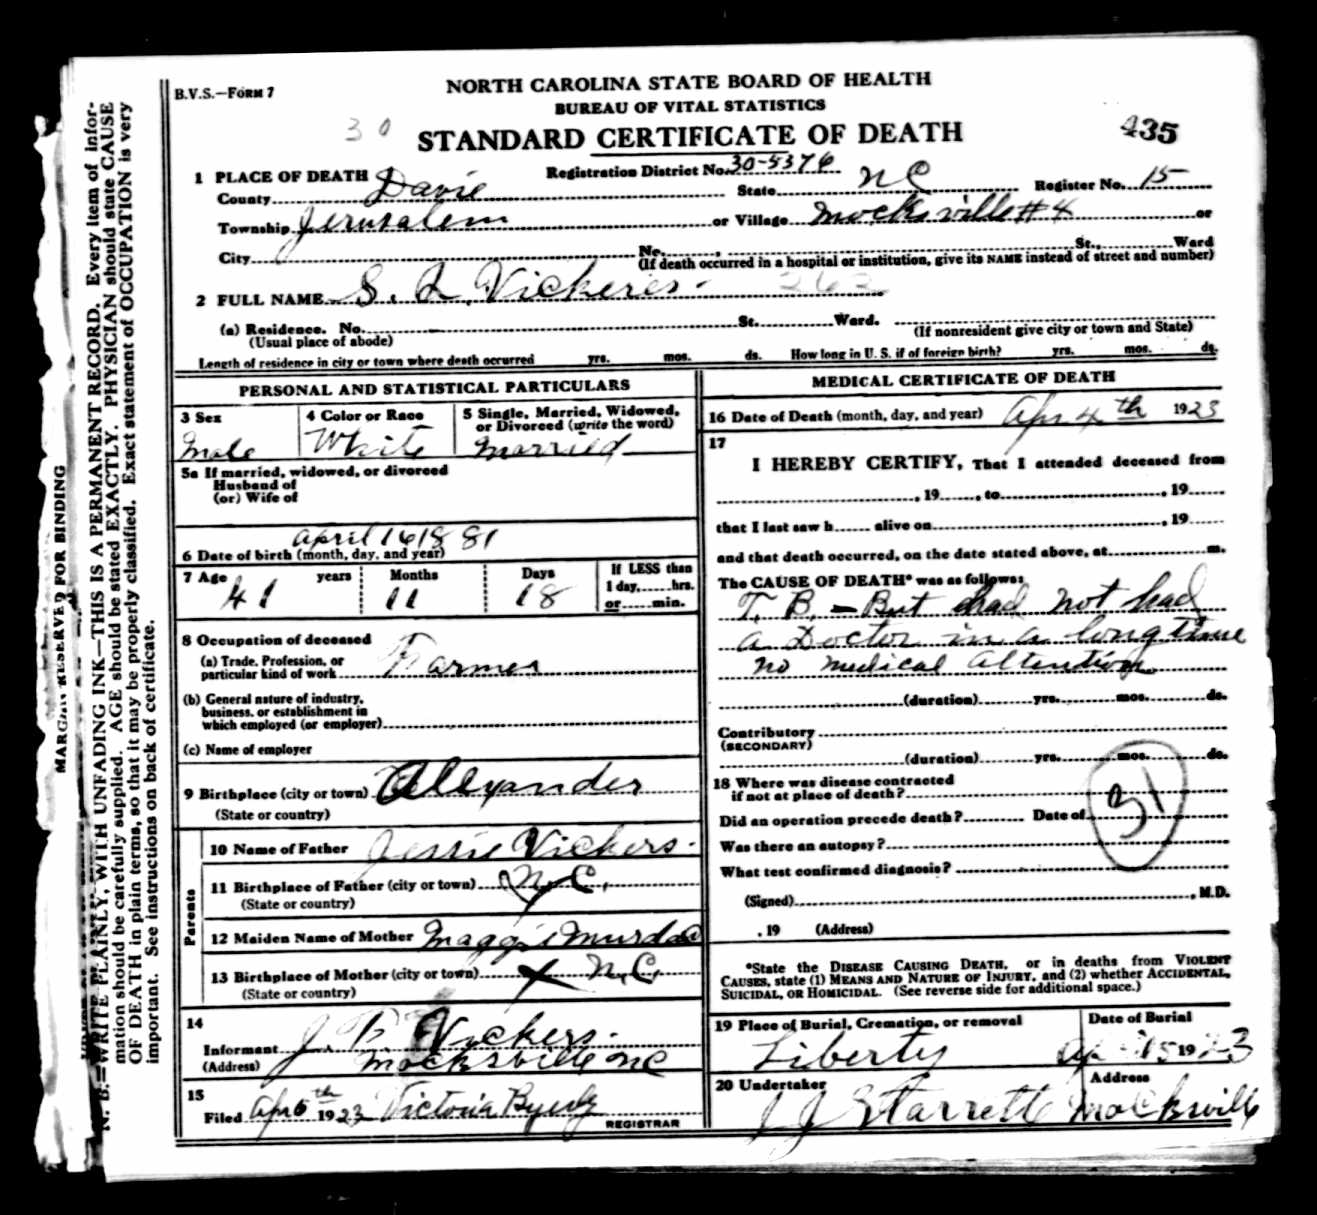 B.V.S.—FORM 7
NORTH CAROLINA STATE BOARD OF HEALTH
BUREAU OF VITAL STATISTICS
30
STANDARD CERTIFICATE OF DEATH
435
1 PLACE OF DEATH
Registration District No. 30-5376
County Davie State NC Register No. 15
Township Jerusalem or Village Mocksville #4 or
City No. St., Ward
(If death occurred in a hospital or institution, give its NAME instead of street and number)
2 FULL NAME S. L. Vickers 262
(a) Residence. No. St. Ward.
(Usual place of abode) (If nonresident give city or town and State)
Length of residence in city or town where death occurred yrs. mos. ds. How long in U. S. if of foreign birth? yrs. mos. ds.
PERSONAL AND STATISTICAL PARTICULARS
3 Sex
Male
4 Color or Race
White
5 Single, Married, Widowed, or Divorced (write the word)
Married
5a If married, widowed, or divorced
Husband of
(or) Wife of
6 Date of birth (month, day, and year) April 16 1881
7 Age years Months Days
41 11 18
If LESS than
1 day, hrs.
or min.
8 Occupation of deceased
(a) Trade, Profession, or
particular kind of work Farmer
(b) General nature of industry,
business, or establishment in
which employed (or employer)
(c) Name of employer
9 Birthplace (city or town) Alexander
(State or country)
Parents
10 Name of Father Jessie Vickers.
11 Birthplace of Father (city or town) N.C.
(State or country)
12 Maiden Name of Mother Maggie
13 Birthplace of Mother (city or town) x N.C.
(State or country)
14
Informant Vickers.
(Address) Mocksville NC
15
Filed Apr 5th 1923 Victoria Byerly
REGISTRAR
MEDICAL CERTIFICATE OF DEATH
16 Date of Death (month, day, and year) Apr 4th 1923
17
I HEREBY CERTIFY, That I attended deceased from
, 19 , to , 19
that I last saw h alive on , 19
and that death occurred, on the date stated above, at m.
The CAUSE OF DEATH* was as follows:
T. B. - But had not had
a Doctor in a long time
no medical attention
(duration) yrs. mos. ds.
Contributory
(SECONDARY)
(duration) yrs. mos. ds.
18 Where was disease contracted
if not at place of death?
Did an operation precede death? Date of
31
Was there an autopsy?
What test confirmed diagnosis?
(Signed) , M.D.
, 19 (Address)
*State the DISEASE CAUSING DEATH, or in deaths from VIOLENT
CAUSES, state (1) MEANS AND NATURE OF INJURY, and (2) whether ACCIDENTAL,
SUICIDAL, OR HOMICIDAL. (See reverse side for additional space.)
19 Place of Burial, Cremation, or removal
Liberty
Date of Burial
Ap 5 1923
20 Undertaker
J J Starrette
Address
Mocksville
MARGIN RESERVED FOR BINDING
N. B.—WRITE PLAINLY, WITH UNFADING INK—THIS IS A PERMANENT RECORD. Every item of infor-
mation should be carefully supplied. AGE should be stated EXACTLY. PHYSICIAN should state CAUSE
OF DEATH in plain terms, so that it may be properly classified. Exact statement of OCCUPATION is very
important. See instructions on back of certificate.